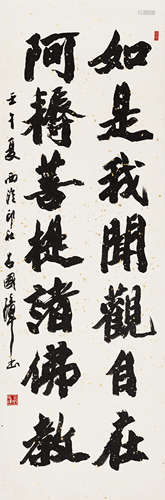 如是我聞觀自在
阿耨菩提諸佛教
壬午夏西泠印社呂國璋書